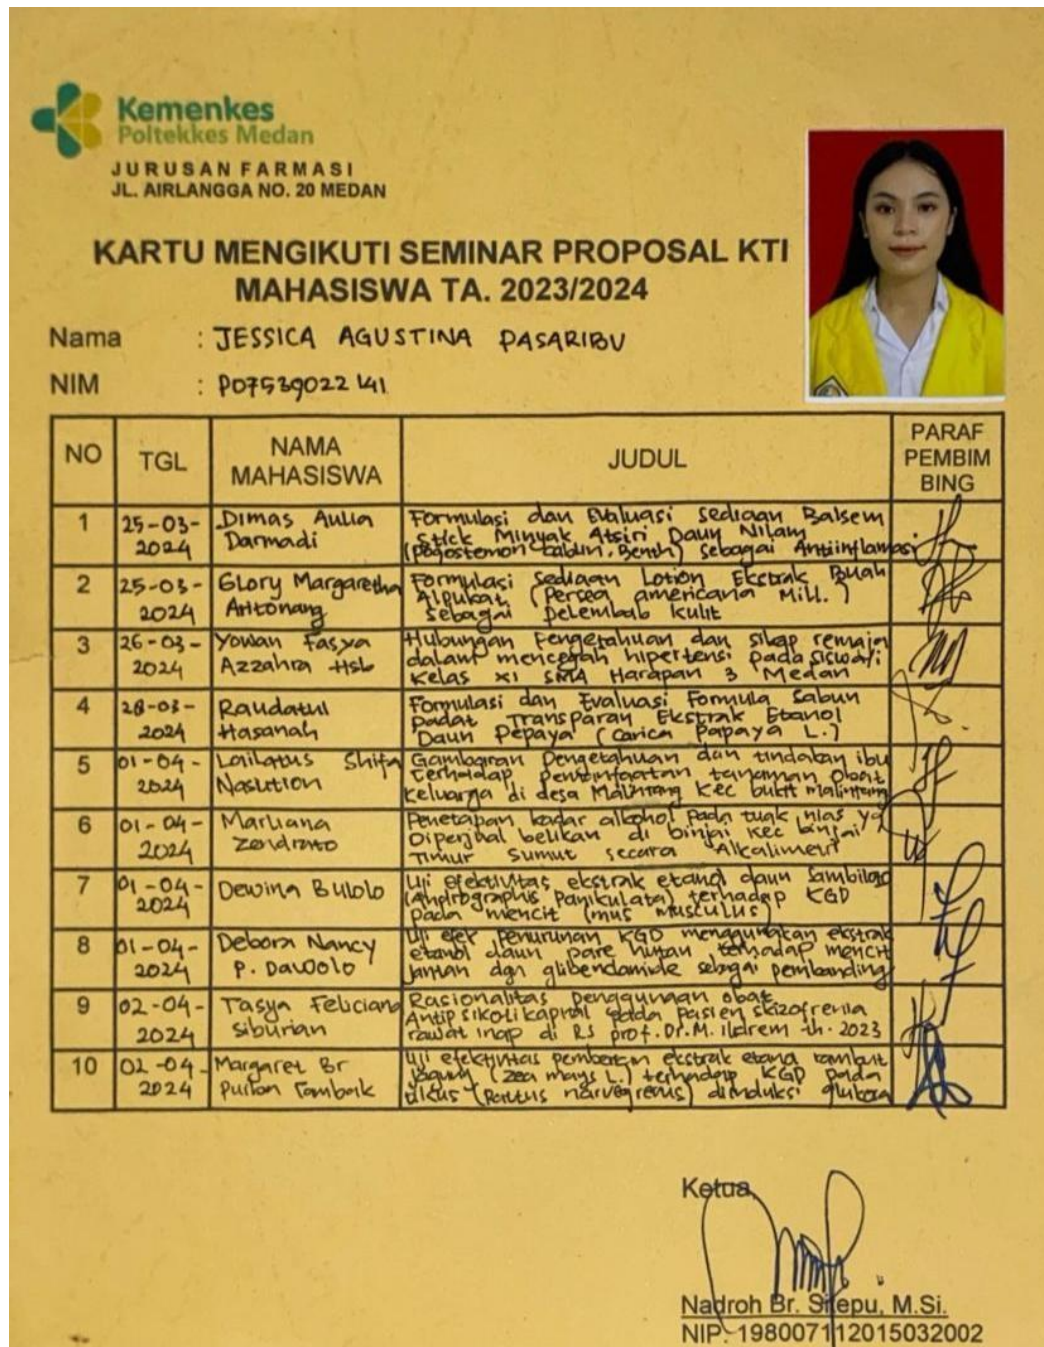 Kemenkes
Poltekkes Medan
JURUSAN FARMASI
JL. AIRLANGGA NO. 20 MEDAN
KARTU MENGIKUTI SEMINAR PROPOSAL KTI
MAHASISWA TA. 2023/2024
Nama : JESSICA AGUSTINA PASARIBU
NIM : P07539022141
NO TGL NAMA MAHASISWA JUDUL PARAF PEMBIM BING
1 25-03-2024 Dimas Aulia Darmadi
Formulasi dan Evaluasi Sediaan Balsem
Stick Minyak Atsiri Daun Nilam
(Pogostemon cablin. Benth) sebagai Antiinflamasi
2 25-03-2024 Glory Margaretha Aritonang
Formulasi Sediaan Lotion Ekstrak Buah
Alpukat (Persea americana Mill.)
sebagai pelembab kulit
3 26-03-2024 Yowan Fasya Azzahra Hsb
Hubungan Pengetahuan dan sikap remaja
dalam mencegah hipertensi pada siswa/i
kelas XI SMA Harapan 3 Medan
4 28-03-2024 Raudatul Hasanah
Formulasi dan Evaluasi Formula Sabun
padat Transparan Ekstrak Etanol
Daun Pepaya (Carica papaya L.)
5 01-04-2024 Lailatus Shifa Nasution
Gambaran Pengetahuan dan tindakan ibu
terhadap pemanfaatan tanaman obat
keluarga di desa Malintang kec bukit malintang
6 01-04-2024 Marliana Zendrato
Penetapan kadar alkohol pada tuak nias yg
Diperjual belikan di binjai kec binjai
Timur Sumut secara Alkalimetri
7 01-04-2024 Dewina Bulolo
Uji efektivitas ekstrak etanol daun Sambiloto
(Andrographis Panikulata) terhadap KGD
pada mencit (mus musculus)
8 01-04-2024 Debora Nancy P. Dawolo
Uji efek penurunan KGD menggunakan ekstrak
etanol daun pare hutan terhadap mencit
jantan dgn glibenclamide sebagai pembanding
9 02-04-2024 Tasya Feliciana Siburian
Rasionalitas penggunaan obat
Antipsikoti kapital pada pasien skizofrenia
rawat inap di RS prof. Dr. M. Ildrem th. 2023
10 02-04-2024 Margaret Br Purba Tambak
Uji efektivitas pemberian ekstrak etanol rambut
jagung (Zea mays L.) terhadap KGD pada
tikus (Rattus norvegicus) diinduksi glukosa
Ketua,
Nadroh Br. Sitepu, M.Si.
NIP. 198007112015032002